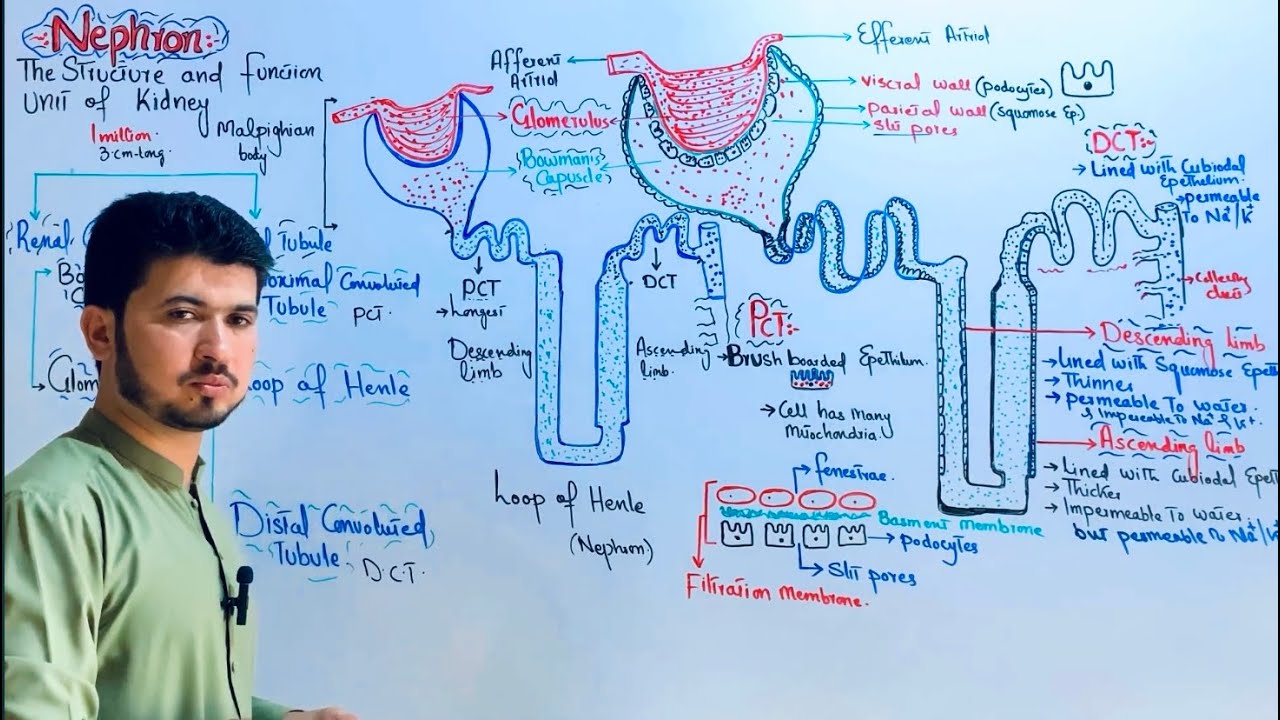 Nephron:
The Structure and function
Unit of Kidney
1 million.
3.cm-long.
Malpighian
body
Renal
Tubule
Convoluted
Tubule
PCT.
Loop of Henle
Distal Convoluted
Tubule
D.C.T.
Afferent
Artriol
Glomerulus
Bowman's
Capuscle
PCT
→Longest
DCT
Descending
limb
Ascending
limb.
Loop of Henle
(Nephron)
Efferent Artriol
viscral wall (podocytes)
parietal wall (squamose Ep.)
Slit pores
DCT:-
→ Lined with Cubiodal
Epethelium.
→permeable
To Na+/K+
→Collecting
ducts
PCT:-
→Brush boarded Epethilium.
→ Cell has many
Mitochondria.
Descending limb
→Lined with Squamose Epet
→Thinner
→permeable To water.
& Impermeable To Na+ & K+.
Ascending limb
→Lined with Cubiodal Epet
→Thicker
→Impermeable To water.
but permeable To Na+/K
fenestrae.
Basment Membrane
→podocytes
→Slit pores
Filtration Membrane.